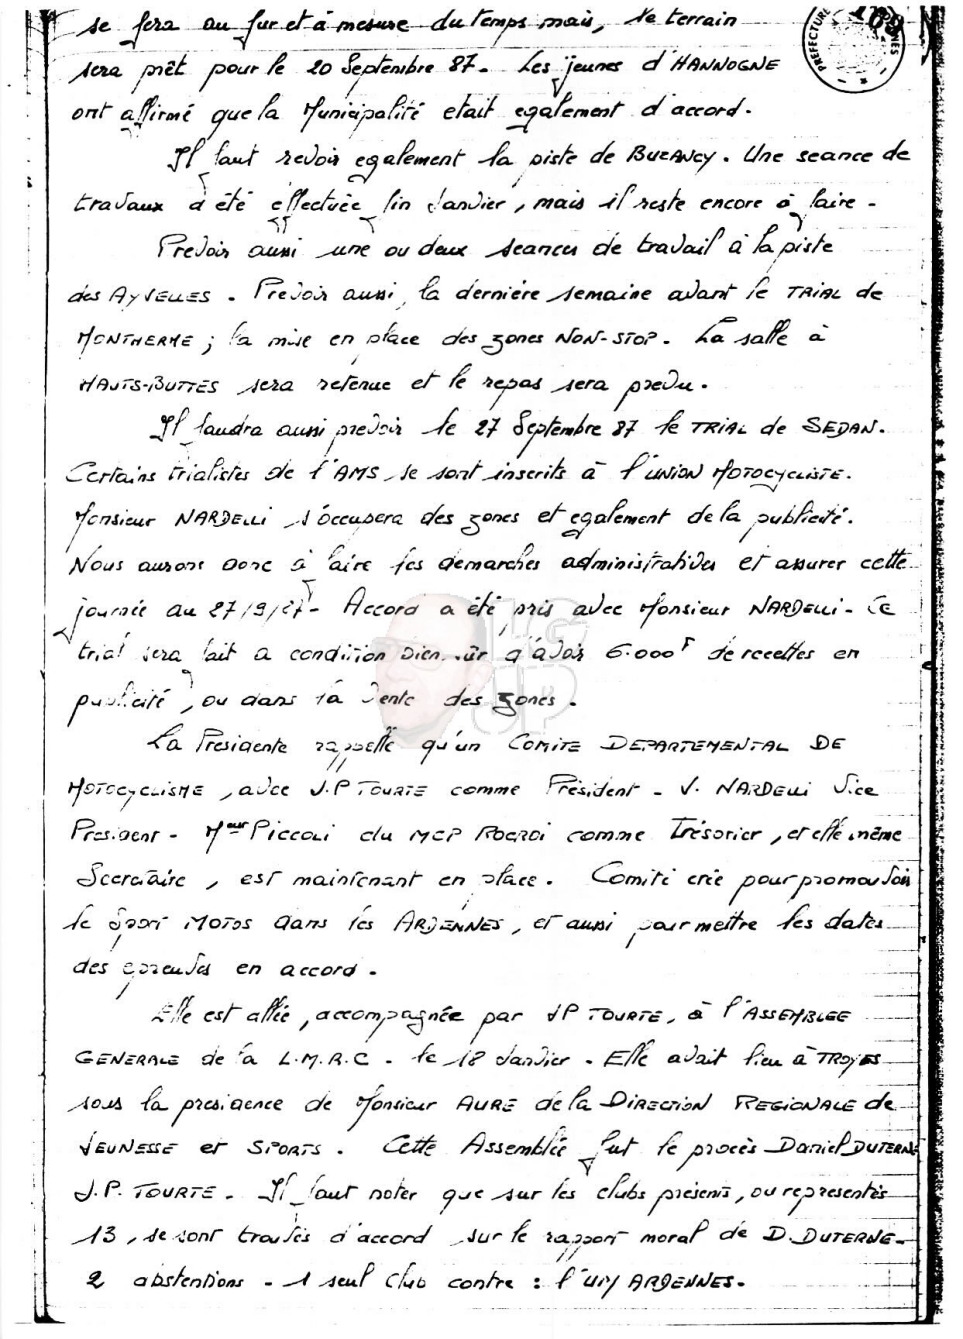 se fera au fur et à mesure du temps mais, le terrain
sera prêt pour le 20 Septembre 87. Les jeunes d'HANNOGNE
ont affirmé que la Municipalité etait egalement d'accord.
Il faut revoir egalement la piste de BUZANCY. Une seance de
travaux a été effectuée fin Janvier, mais il reste encore à faire.
Prevoir aussi une ou deux seances de travail à la piste
des AYVELLES. Prevoir aussi, la derniére semaine avant le TRIAL de
MONTHERME; la mise en place des zones NON-STOP. La salle à
HAUTS-BUTTES sera retenue et le repas sera prevu.
Il faudra aussi prevoir le 27 Septembre 87 le TRIAL de SEDAN.
Certains trialistes de l'AMS se sont inscrits à l'UNION MOTOCYCLISTE.
Monsieur NARDELLI s'occupera des zones et egalement de la publicité.
Nous aurons donc à faire les demarches administratives et assurer cette
journée au 27/9/87. Accord a été pris avec Monsieur NARDELLI. Ce
trial sera fait a condition bien sûr d'avoir 6.000F de recettes en
publicité, ou dans la vente des zones.
La Presidente rappelle qu'un COMITE DEPARTEMENTAL DE
MOTOCYCLISME, avec J.P TOURTE comme Président - V. NARDELLI Vice
President - Meur PICCOLI du MCP ROCROI comme Trésorier, et elle même
Secretaire, est maintenant en place. Comité crée pour promouvoir
le Sport MOTOS dans les ARDENNES, et aussi pour mettre les dates
des epreuves en accord.
Elle est allée, accompagnée par JP TOURTE, à l'ASSEMBLEE
GENERALE de la L.M.R.C. le 18 Janvier. Elle avait lieu à TROYES
sous la presidence de Monsieur AURE de la DIRECTION REGIONALE de
JEUNESSE et SPORTS. Cette Assemblée fut le procès Daniel DUTERNE
J.P. TOURTE. Il faut noter que sur les clubs présents, ou representés
13, se sont trouvés d'accord sur le rapport moral de D. DUTERNE.
2 abstentions - 1 seul Club contre : l'UM ARDENNES.